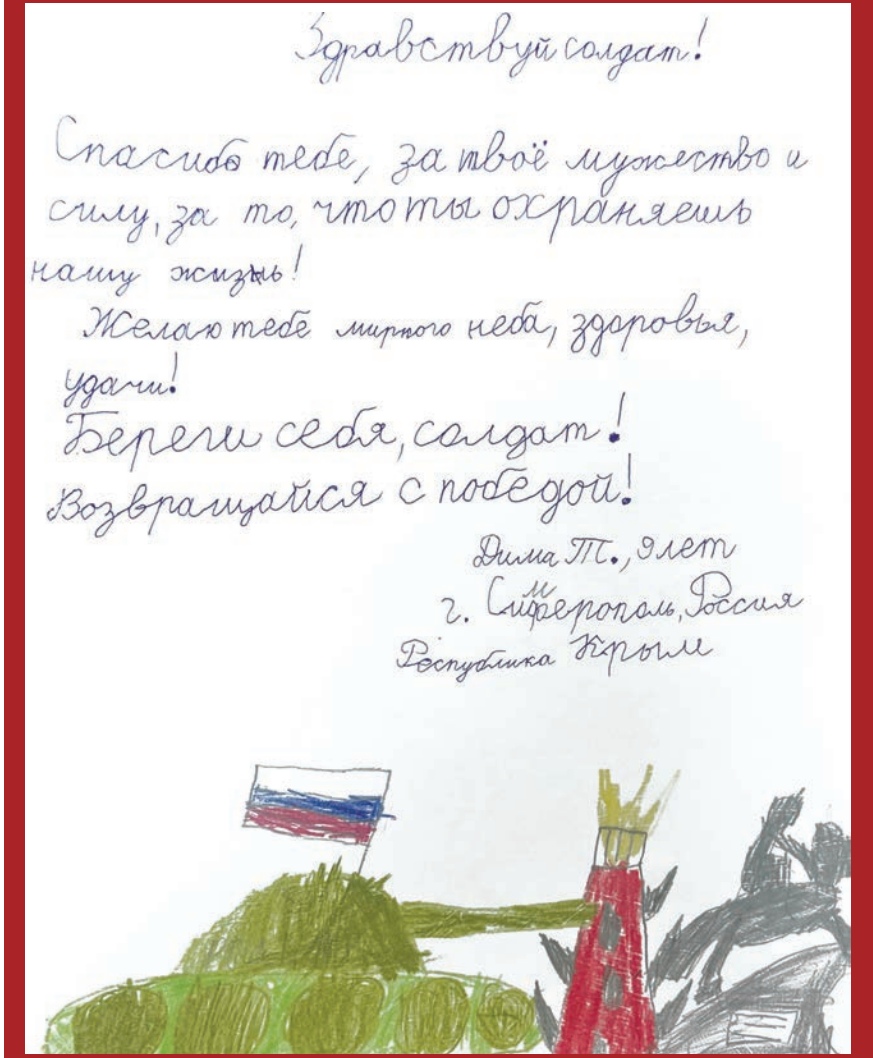 Здравствуй солдат!
Спасибо тебе, за твоё мужество и
силу, за то, что ты охраняешь
нашу жизнь!
Желаю тебе мирного неба, здоровья,
удачи!
Береги себя, солдат!
Возвращайся с победой!
Дима Т., 9 лет
г. Симферополь, Россия
Республика Крым